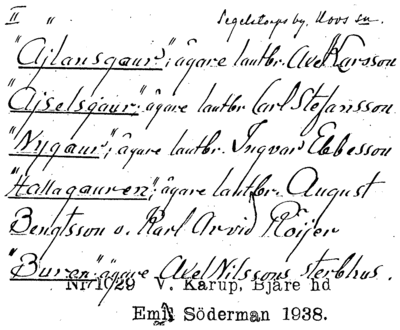 II " Segelstorps by. Hovs sn.
"Ajlansgaur"; ägare lantbr. Axel Karsson
"Ajselsgaur"; ägare lantbr Carl Stefansson.
"Nygaur"; ägare lantbr. Ingvar Ebbesson
"Hallagauren"; ägare lantbr. August
Bengtsson o. Karl Arvid Röijer
"Buren" ägare Axel Nilssons sterbhus.
Nr 1029 V. Karup, Bjäre hd
Emil Söderman 1938.